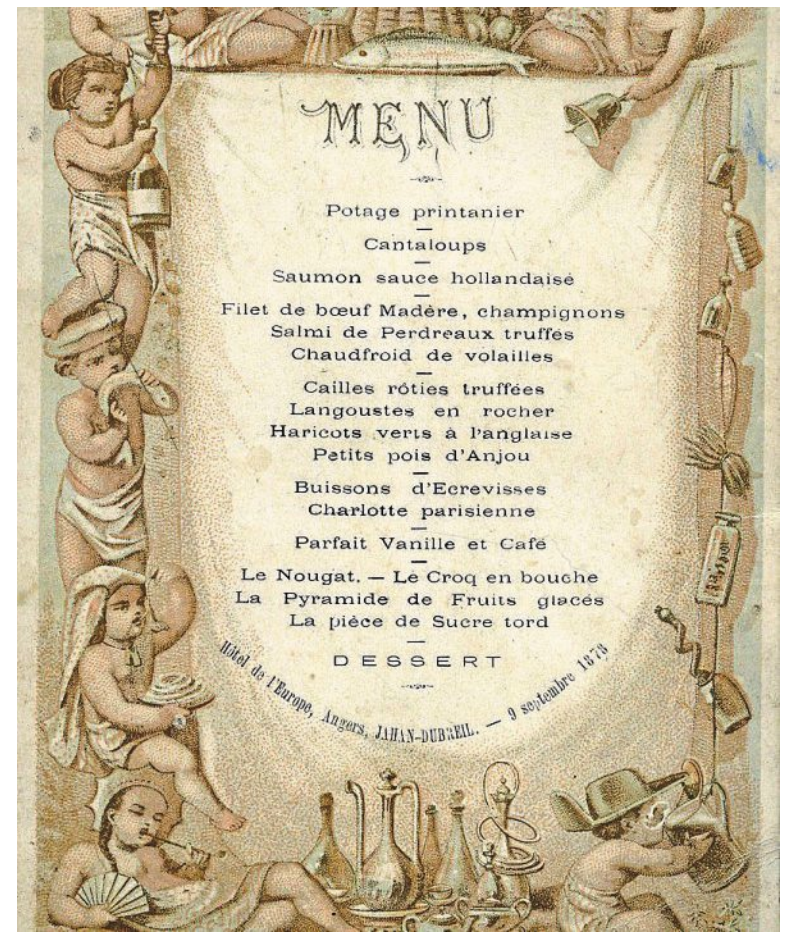 MENU
Potage printanier
Cantaloups
Saumon sauce hollandaise
Filet de bœuf Madère, champignons
Salmi de Perdreaux truffés
Chaudfroid de volailles
Cailles rôties truffées
Langoustes en rocher
Haricots verts à l'anglaise
Petits pois d'Anjou
Buissons d'Ecrevisses
Charlotte parisienne
Parfait Vanille et Café
Le Nougat. — Le Croq en bouche
La Pyramide de Fruits glacés
La pièce de Sucre tord
DESSERT
Hôtel de l'Europe, Angers, JAHAN-DUBREIL. — 9 septembre 1878